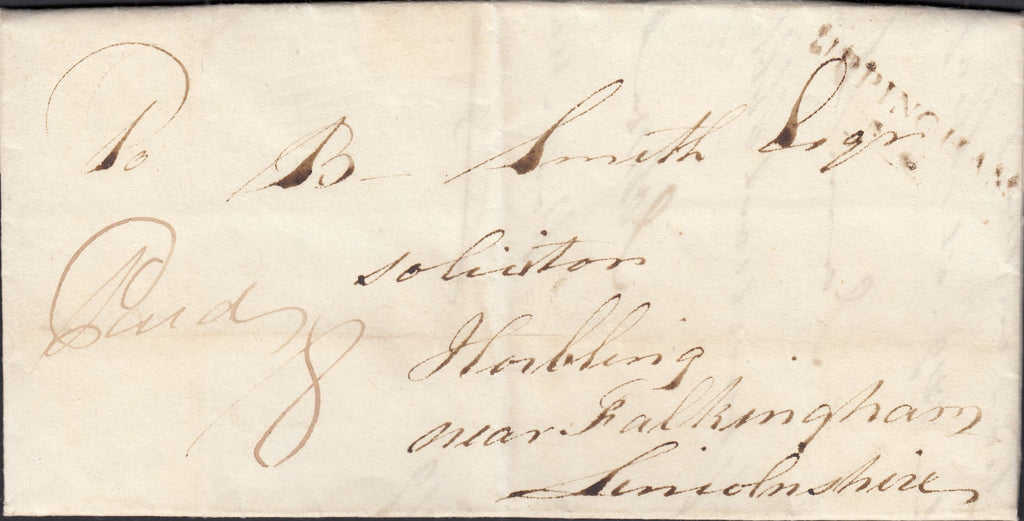 UPPINGHAM
To B- Smith Esqr
solicitor
Horbling
near Falkingham
Lincolnshire
Paid 8